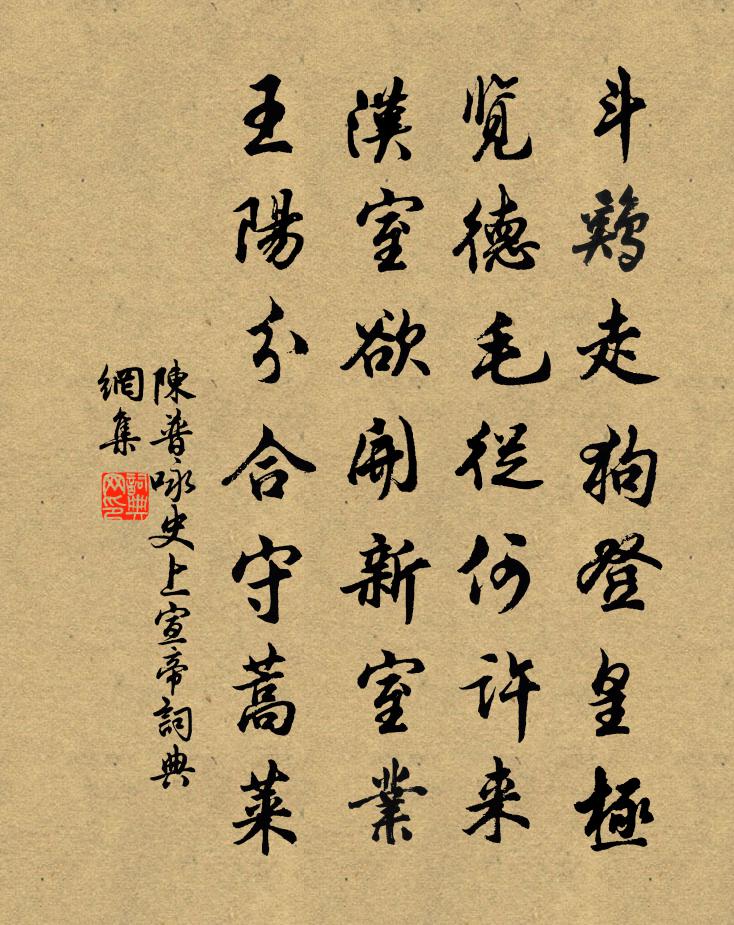 斗鷄走狗登皇極
覧德毛從何許来
漢室欲開新室業
王陽分合守蒿萊
陳普咏史上宣帝詞典
網集
詞典
网印